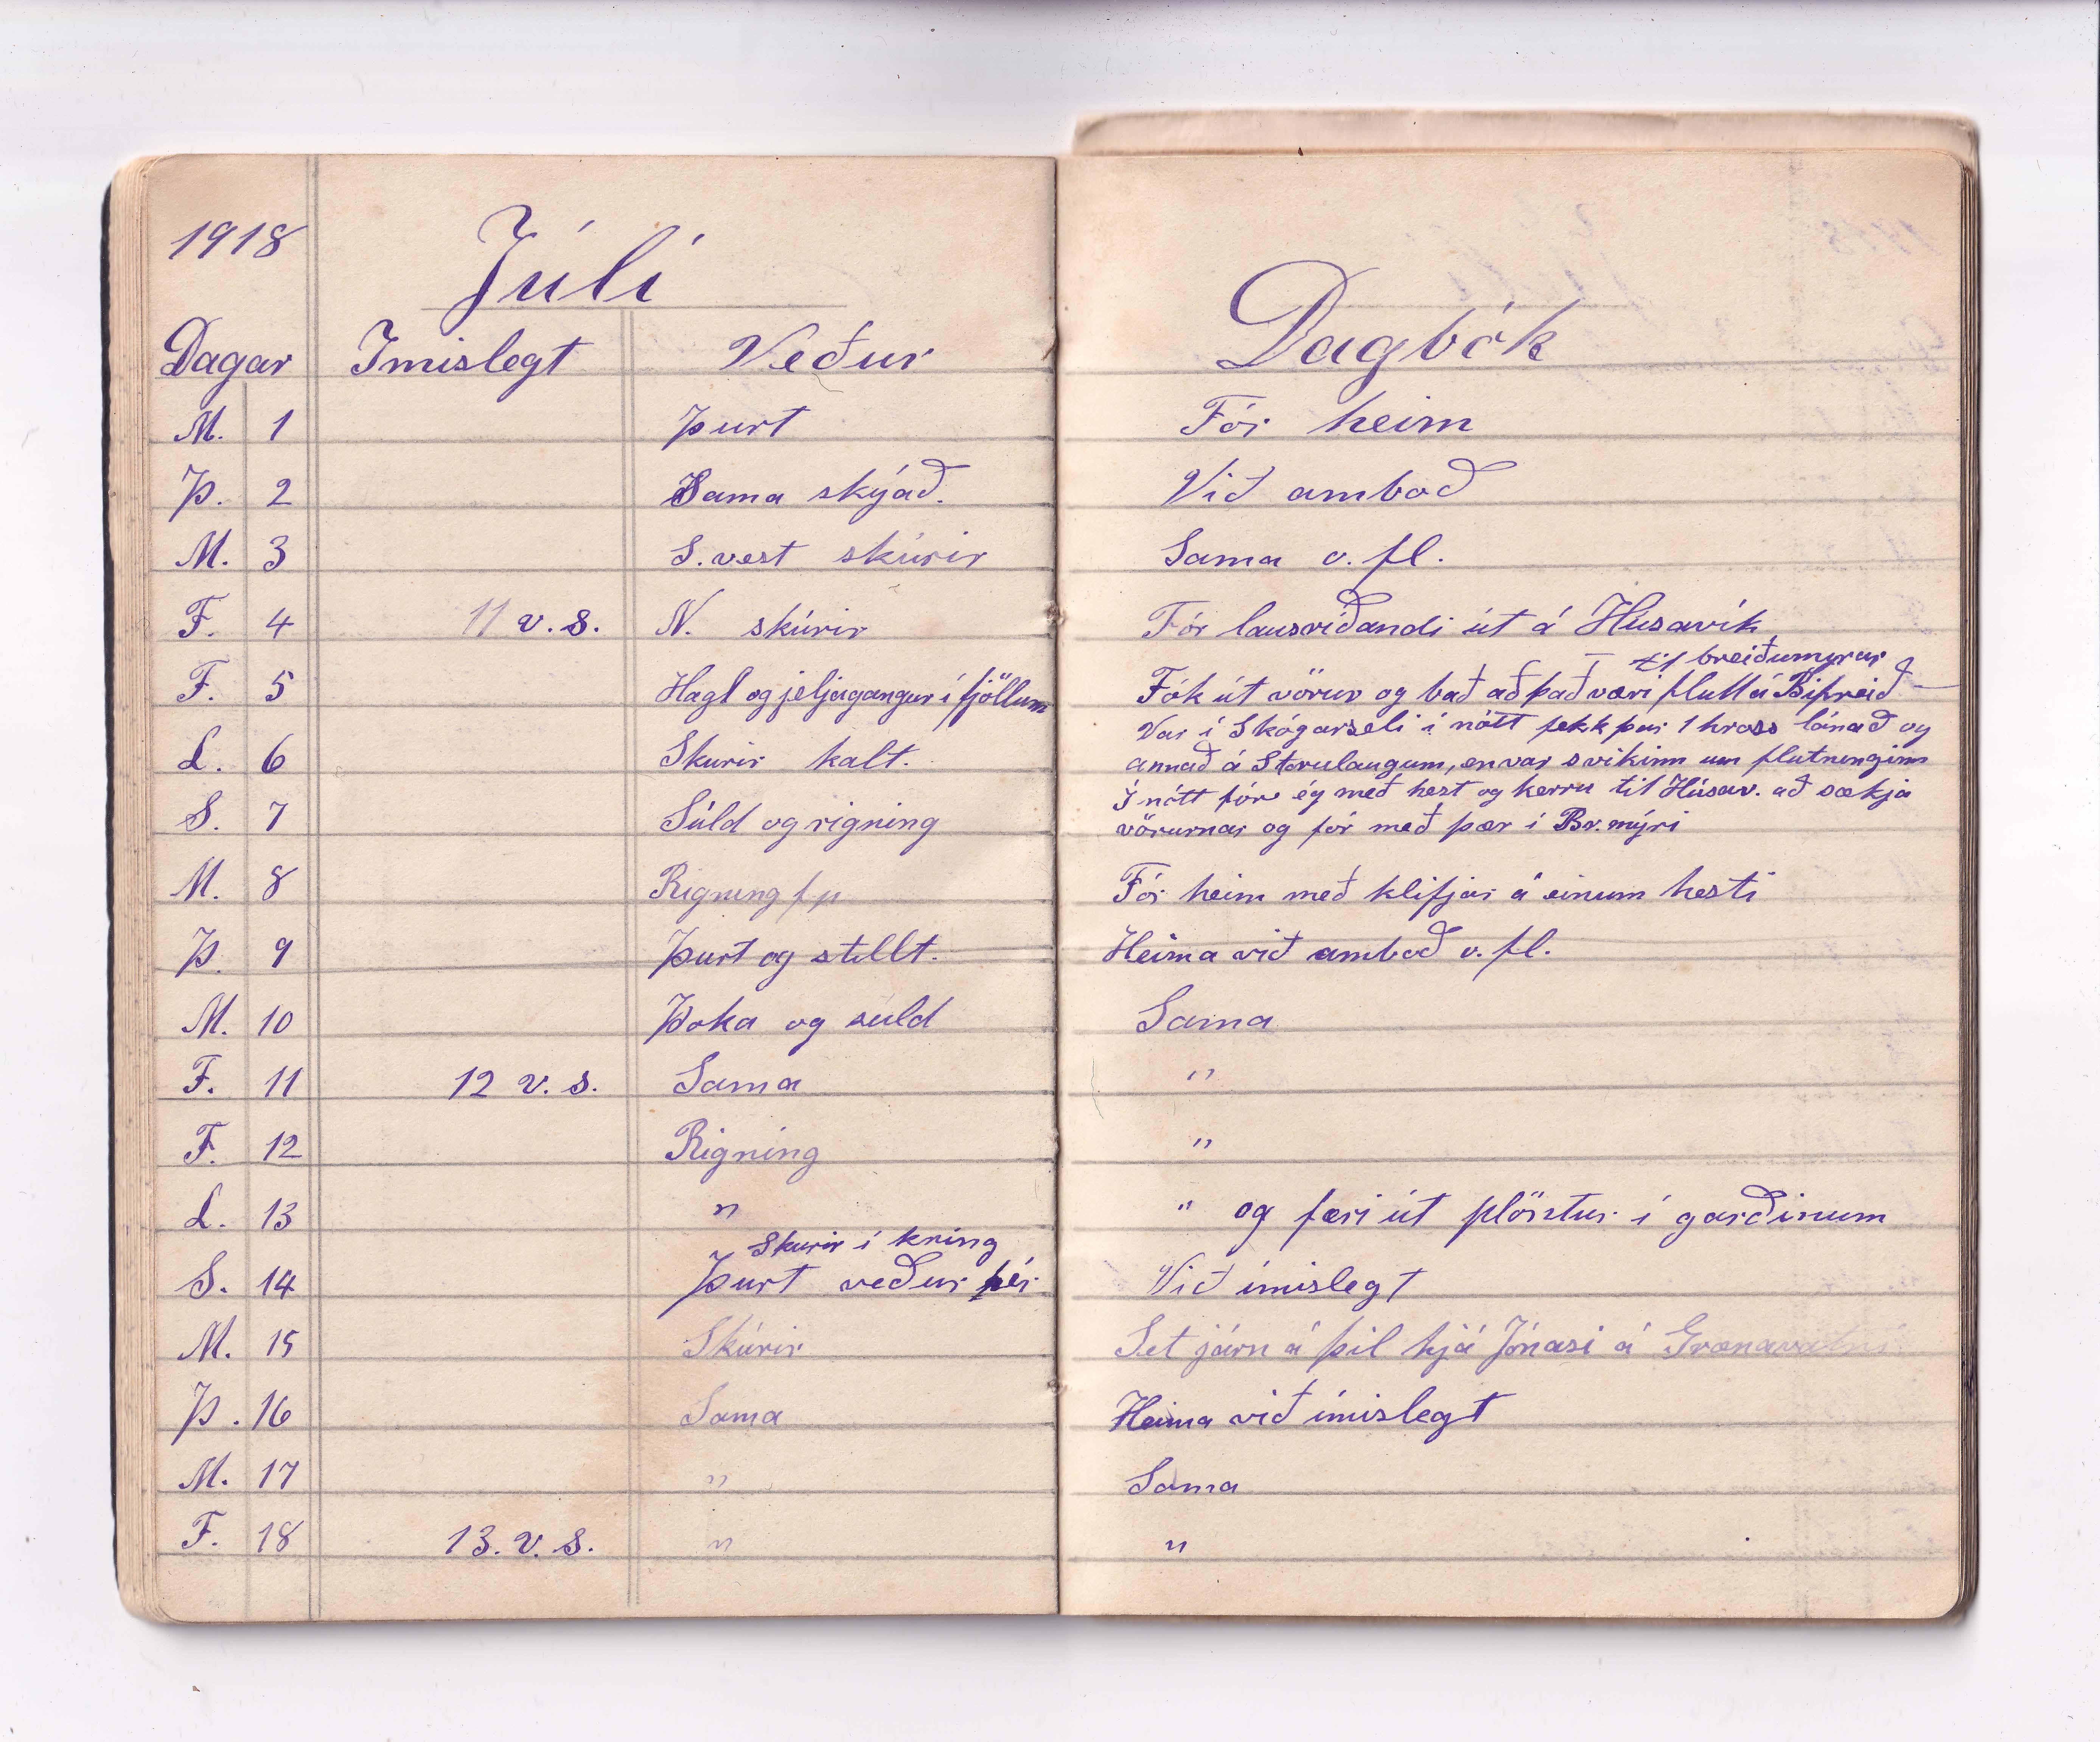 1918 Júlí
Dagbók
Dagar Imislegt Veður
M. 1 Þurt Fór heim
Þ. 2 Sama skýað. Við amboð
M. 3 S.vest skúrir Sama o.fl.
F. 4 11 v.s. N. skúrir Fór lausríðandi út á Húsavík
til breiðumyrar
F. 5 Hagl og jeljagangur í fjöllum Tók út vörur og bað að það væri flutt á Bifreið —
Var í Skógarseli í nótt fekk þar 1 hross lánað og
L. 6 Skurir kalt. annað á Storulaugum, en var svikinn um flutnengin
Í nótt fór ég með hest og kerru til Húsav. að sækja
S. 7 Súld og rigning vörurnar og fór með þær í Br.mýri
M. 8 Rigning f.p Fór heim með klifjar á einum hesti
Þ. 9 Þurt og stillt. Heima við amboð o.fl.
M. 10 Þoka og suld Sama
F. 11 12 v.s. Sama "
F. 12 Rigning "
L. 13 " " og færi út plöntur í garðinum
Skurir í kring
S. 14 Þurt veður hér Við ímislegt
M. 15 Skúrir Set járn á þil hjá Jónasi á Grænavatni
Þ. 16 Sama Heima við ímislegt
M. 17 " Sama
F. 18 13. v. s. " "